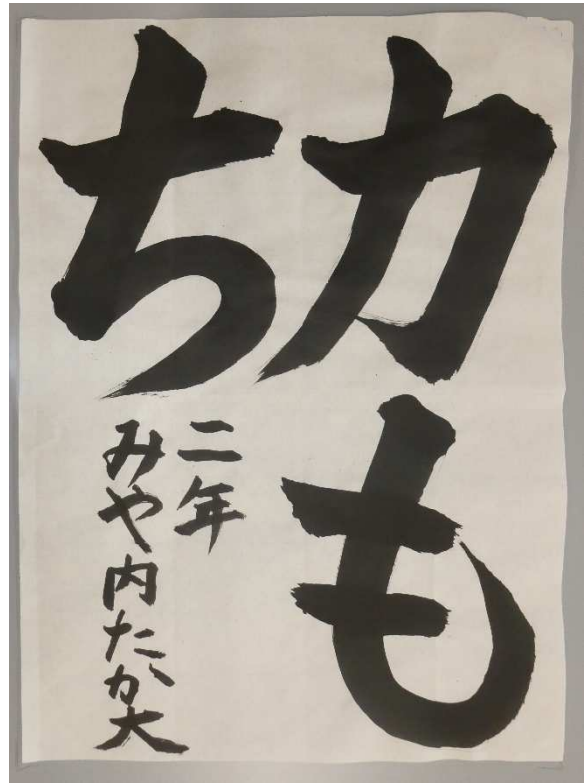 力も
ち
二年
みや内たか大